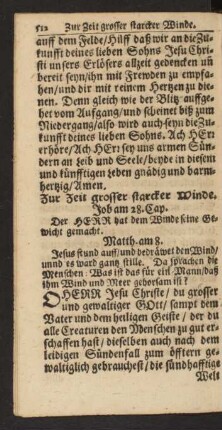 512 Zur Zeit grosser starcker Winde.
auff dem Felde/ Hülff daß wir an die Zu-
kunfft deines lieben Sohns Jesu Chri-
sti unsers Erlösers allzeit gedencken uñ
bereit seyn/ ihn mit Frewden zu empfa-
hen/ und dir mit reinem Hertzen zu die-
nen. Denn gleich wie der Blitz außge-
het vom Auffgang/ und scheinet biß zum
Niedergang/ also wird auch seyn die Zu-
kunfft deines lieben Sohns. Ach HErr
erhöre/ Ach HErr sey uns armen Sün-
dern an Leib und Seele/ beyde in diesem
und künfftigen Leben gnädig und barm-
hertzig/ Amen.
Zur Zeit grosser starcker Winde.
Job am 28. Cap.
Der HERR hat dem Winde seine Ge-
wicht gemacht.
Matth. am 8.
Jesus stund auff/ und bedräwet den Wind/
unnd es ward gantz stille. Da sprachen die
Menschen: Was ist das für ein Mann/ daß
ihm Wind und Meer gehorsam ist?
O HERR Jesu Christe/ du grosser
und gewaltiger GOtt/ sampt dem
Vater und dem heiligen Geiste/ der du
alle Creaturen den Menschen zu gut er-
schaffen hast/ dieselben auch nach dem
leidigen Sündenfall zum öfftern ge-
waltiglich gebrauchest/ die sündhafftige
Welt